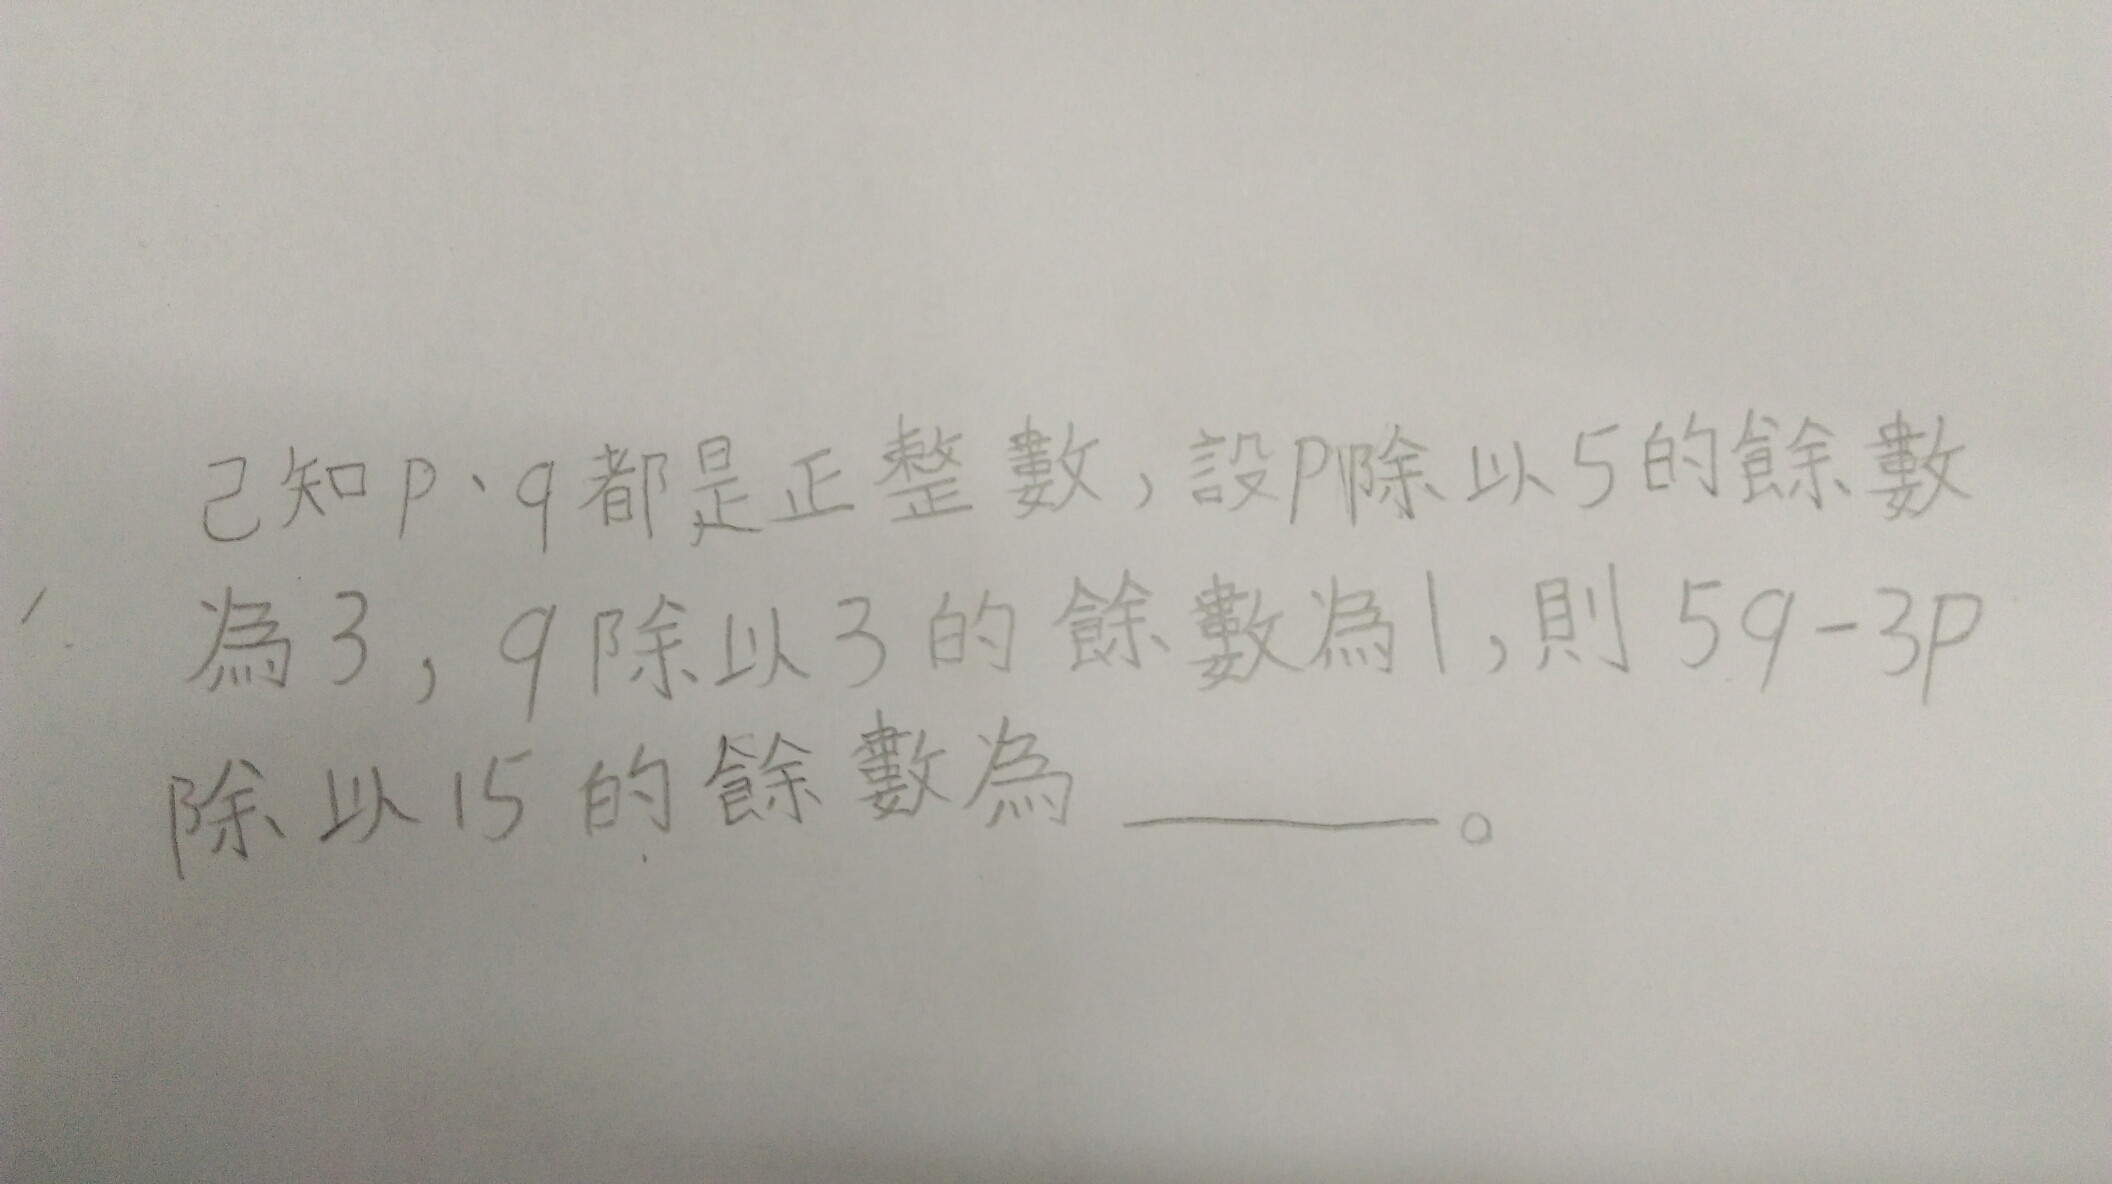 已知p、q都是正整數,設p除以5的餘數
為3,q除以3的餘數為1,則5q-3p
除以15的餘數為______。